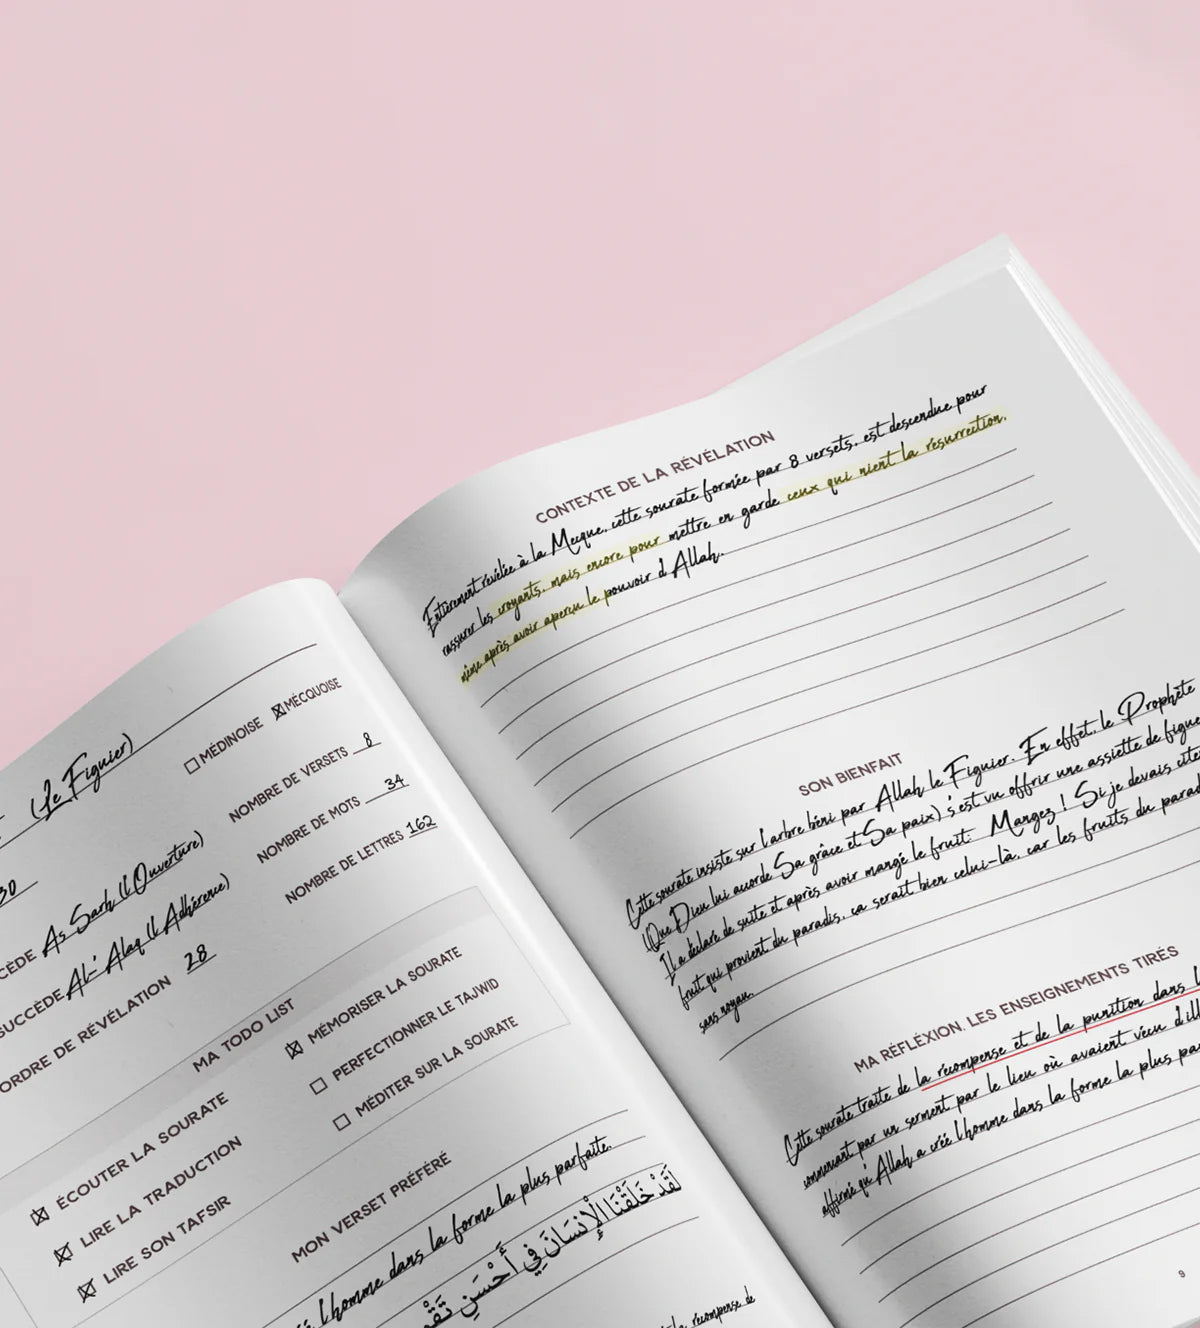 (Le Figuier)
30
CÈDE As Sarh (L'Ouverture)
SUCCÈDE Al-'Alaq (L'Adhérence)
ORDRE DE RÉVÉLATION 28
MÉDINOISE MÉCQUOISE
NOMBRE DE VERSETS 8
NOMBRE DE MOTS 34
NOMBRE DE LETTRES 162
MA TODO LIST
ÉCOUTER LA SOURATE
LIRE LA TRADUCTION
LIRE SON TAFSIR
MÉMORISER LA SOURATE
PERFECTIONNER LE TAJWID
MÉDITER SUR LA SOURATE
MON VERSET PRÉFÉRÉ
l'homme dans la forme la plus parfaite.
لَقَدْ خَلَقْنَا الْإِنْسَانَ فِي أَحْسَنِ تَقْ
récompense de
CONTEXTE DE LA RÉVÉLATION
Entièrement révélée à la Mecque, cette sourate formée par 8 versets, est descendue pour
rassurer les croyants, mais encore pour mettre en garde ceux qui nient la résurrection,
même après avoir aperçu le pouvoir d'Allah.
SON BIENFAIT
Cette sourate insiste sur l'arbre béni par Allah, le Figuier. En effet, le Prophète
(Que Dieu lui accorde Sa grâce et Sa paix) s'est vu offrir une assiette de figue
Il a déclaré de suite et après avoir mangé le fruit: Mangez ! Si je devais citer
fruit qui provient du paradis, ça serait bien celui-là, car les fruits du parad
sans noyau.
MA RÉFLÉXION, LES ENSEIGNEMENTS TIRÉS
Cette sourate traite de la récompense et de la punition dans l
commençant par un serment par le lieu où avaient vécu d'ill
affirmé qu'Allah a créé l'homme dans la forme la plus par
9